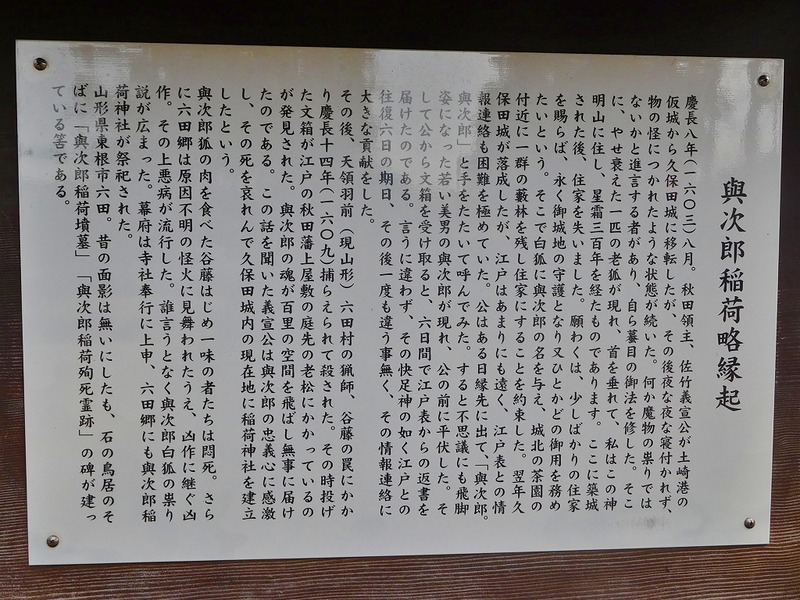 與次郎稲荷略縁起
慶長八年(一六〇三)八月。秋田領主、佐竹義宣公が土崎港の
仮城から久保田城に移転したが、その後夜な夜な寝付かれず、
物の怪につかれたような状態が続いた。何か魔物の祟りでは
ないかと進言する者があり、自ら蟇目の御法を修した。そこ
に、やせ衰えた一匹の老狐が現れ、首を垂れて、私はこの神
明山に住し、星霜三百年を経たものであります。ここに築城
された後、住家を失いました。願わくは、少しばかりの住家
を賜らば、永く御城地の守護となり又ひとかどの御用を務め
たいという。そこで白狐に與次郎の名を与え、城北の茶園の
付近に一群の藪林を残し住家にすることを約束した。翌年久
保田城が落成したが、江戸はあまりにも遠く、江戸表との情
報連絡も困難を極めていた。公はある日縁先に出て、「與次郎。
與次郎」と手をたたいて呼んでみた。すると不思議にも飛脚
姿になった若い美男の與次郎が現れ、公の前に平伏した。そ
して公から文箱を受け取ると、六日間で江戸表からの返書を
届けたのである。言うに違わず、その快足神の如く江戸との
往復六日の期日、その後一度も違う事無く、その情報連絡に
大きな貢献をした。
その後、天領羽前(現山形)六田村の猟師、谷藤の罠にかか
り慶長十四年(一六〇九)捕らえられて殺された。その時投げ
た文箱が江戸の秋田藩上屋敷の庭先の老松にかかっているの
が発見された。與次郎の魂が百里の空間を飛ばし無事に届け
たのである。この話を聞いた義宣公は與次郎の忠義心に感激
し、その死を哀れんで久保田城内の現在地に稲荷神社を建立
したという。
與次郎狐の肉を食べた谷藤はじめ一味の者たちは悶死。さら
に六田郷は原因不明の怪火に見舞われたうえ、凶作に継ぐ凶
作。その上悪病が流行した。誰言うとなく與次郎白狐の祟り
説が広まった。幕府は寺社奉行に上申、六田郷にも與次郎稲
荷神社が祭祀された。
山形県東根市六田。昔の面影は無いにしたも、石の鳥居のそ
ばに「與次郎稲荷墳墓」「與次郎稲荷殉死霊跡」の碑が建っ
ている筈である。